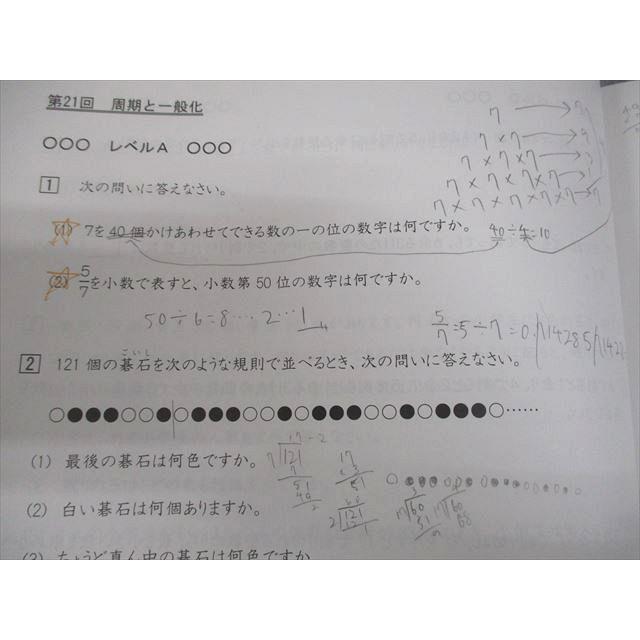 第21回 周期と一般化
○○○ レベルA ○○○
7 → 7
7×7 → 9
7×7×7 → 3
7×7×7×7 → 1
7×7×7×7×7 → 7
1 次の問いに答えなさい。
(1) 7を40個かけあわせてできる数の一の位の数字は何ですか。 40÷4=10
(2) 5/7を小数で表すと、小数第50位の数字は何ですか。
50÷6=8…2…1
5/7=5÷7=0.714285714
2 121個の碁石を次のような規則で並べるとき、次の問いに答えなさい。
ごいし
○●●●○○●○●●●○○●○●●●○○●○●●●○……
(1) 最後の碁石は何色ですか。
17…2
7)121
(2) 白い碁石は何個ありますか。
2)121
(3) ちょうど真ん中の碁石は何色ですか